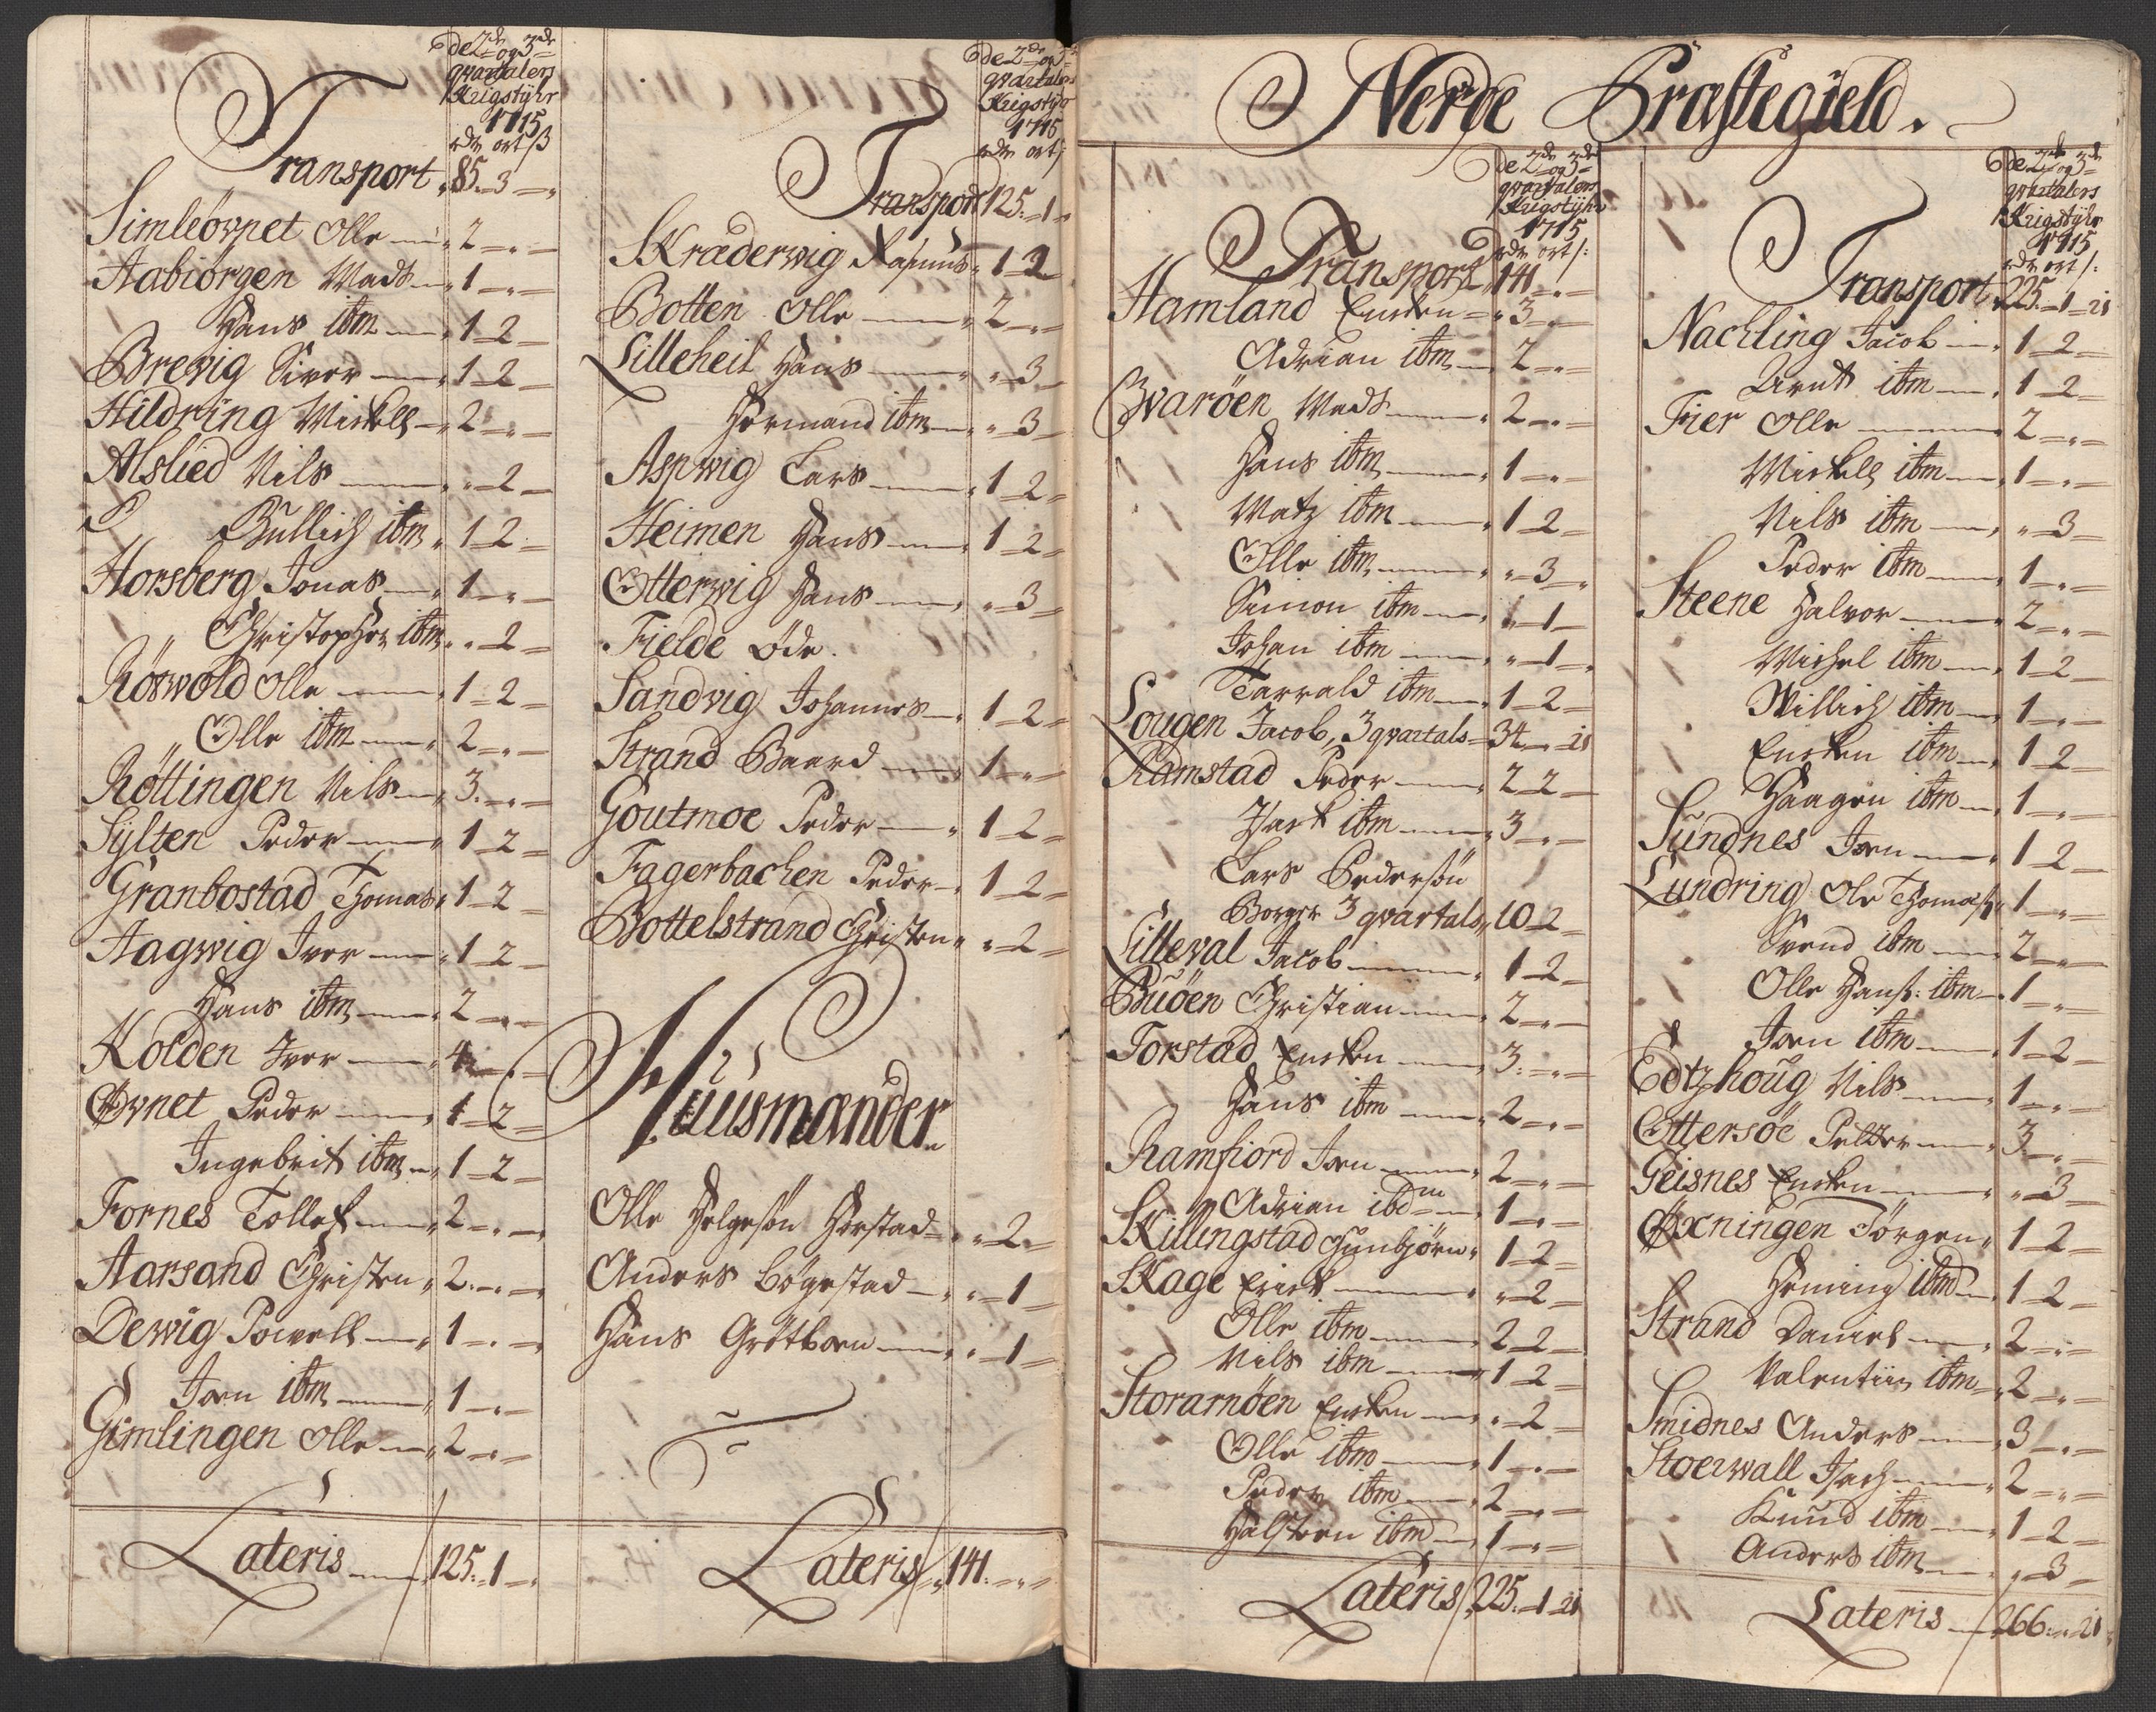 de 2de og 3de
qvartalers
Krigstyhr
1715
rdr ort ß
Transport 85 - 3 -
Simleövnet Olle - 2 - " -
Aabiörgen Mads - 1 - " -
Hans ibm - 1 - 2 -
Brevig Siver - 1 - 2 -
Hildring Mickell - 2 - " -
Alslied Nils - " - 2 -
Gullich ibm - 1 - 2 -
Horsberg Jonas - 1 - " -
Christopher ibm - " - 2 -
Röswold Olle - 1 - 2 -
Olle ibm - 2 - " -
Röttingen Nils - 3 - " -
Sylten Peder - 1 - 2 -
Granbostad Thomas - 1 - 2 -
Aagwig Iver - 1 - 2 -
Hans ibm - 2 - " -
Kolden Iver - 4 - " -
Øvnet Peder - 1 - 2 -
Ingebrit ibm - 1 - 2 -
Fornes Tollef - 2 - " -
Aarsand Christen - 2 - " -
Dewig Powell - 1 - " -
Joen ibm - 1 - " -
Gimlingen Olle - 2 - " -
Lateris - 125 - 1 - "
de 2de og 3de
qvartalers
Krigstyhr
1715
rdr ort
Transport 125 - 1 -
Skræderwig Rasmus - 1 - 2
Botten Olle - 2 - " -
Lilleheil Hans - " - 3 -
Hermand ibm - " - 3 -
Aspwig Lars - 1 - 2 -
Heimen Hans - 1 - 2 -
Otterwig Hans - " - 3 -
Fielde öde.
Sandvig Johannes - 1 - 2 -
Strand Baard - 1 - " -
Goutmoe Peder - 1 - 2 -
Fagerbachen Peder - 1 - 2 -
Bottelstrand Christen - " - 2 -
Huusmænder
Olle Helgesön Horstad - " - 2 -
Anders Bögestad - " - 1 -
Hans Grötboen - " - 1 -
Lateris - 141 - " -
Neröe Præstegield.
de 2de og 3de
qvartalers
Krigstyhr
1715
rdr ort ß:
Transport 141 - " -
Hamland Ensken - 3 - " -
Adrian ibm - 2 - " -
Qvaröen Mads - 2 - " -
Hans ibm - 1 - " -
Matz ibm - 1 - 2 -
Olle ibm - " - 3 -
Simon ibm - " - 1 -
Johan ibm - " - 1 -
Tarrald ibm - 1 - 2 -
Lougen Jacob, 3 qvartals - 34 - " - 21
Ramstad Peder - 2 - 2 -
Isack ibm - 3 - " -
Lars Pedersön
Borger 3 qvartals - 10 - 2 -
Lilleval Jacob - 1 - 2 -
Buöen Christian - 2 - " -
Torstad Ensken - 3 - " -
Hans ibm - 2 - " -
Ramfiord Joen - 2 - " -
Adrian ibdm - 1 - " -
Skillingstad Gunbjörn - 1 - 2 -
Skage Erick - " - 2 -
Olle ibm - 2 - 2 -
Nils ibm - 1 - 2 -
Storarnöen Ensken - " - 2 -
Olle ibm - 1 - " -
Peder ibm - 2 - " -
Halsteen ibm - 1 - " -
Lateris 225 - 1 - 21
de 2de og 3de
qvartalers
Krigstyhr
1715
rdr ort ß:
Transport 225 - 1 - 21
Nachling Jacob - 1 - 2 -
Arnt ibm - 1 - 2 -
Fier Olle - 2 - " -
Mickell ibm - 1 - " -
Nils ibm - " - 3 -
Peder ibm - 1 - " -
Steene Halvor - 2 - " -
Michel ibm - 1 - 2 -
Willich ibm - 1 - " -
Ensken ibm - 1 - 2 -
Haagen ibm - 1 - " -
Sundnes Joen - 1 - 2 -
Lundring Ole Thomas: - 1 - " -
Svend ibm - 2 - " -
Olle Hans: ibm - 1 - " -
Joen ibm - 1 - 2 -
Edtzhoug Nils - 1 - " -
Ottersöe Petter - 3 - " -
Geisnes Ensken - " - 3 -
Øxningen Törgen - 1 - 2 -
Heming ibm - 1 - 2 -
Strand Daniel - 2 - " -
Valentiin ibm - 2 - " -
Smidnes Anders - 3 - " -
Stoerwall Isach - 2 - " -
Knud ibm - 1 - 2 -
Anders ibm - " - 3 -
Lateris - 266 - " - 21